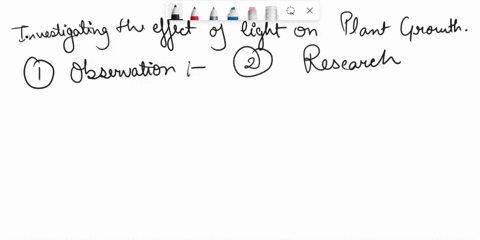 Investigating the effect of light on Plant Growth.
① Observation :- ② Research